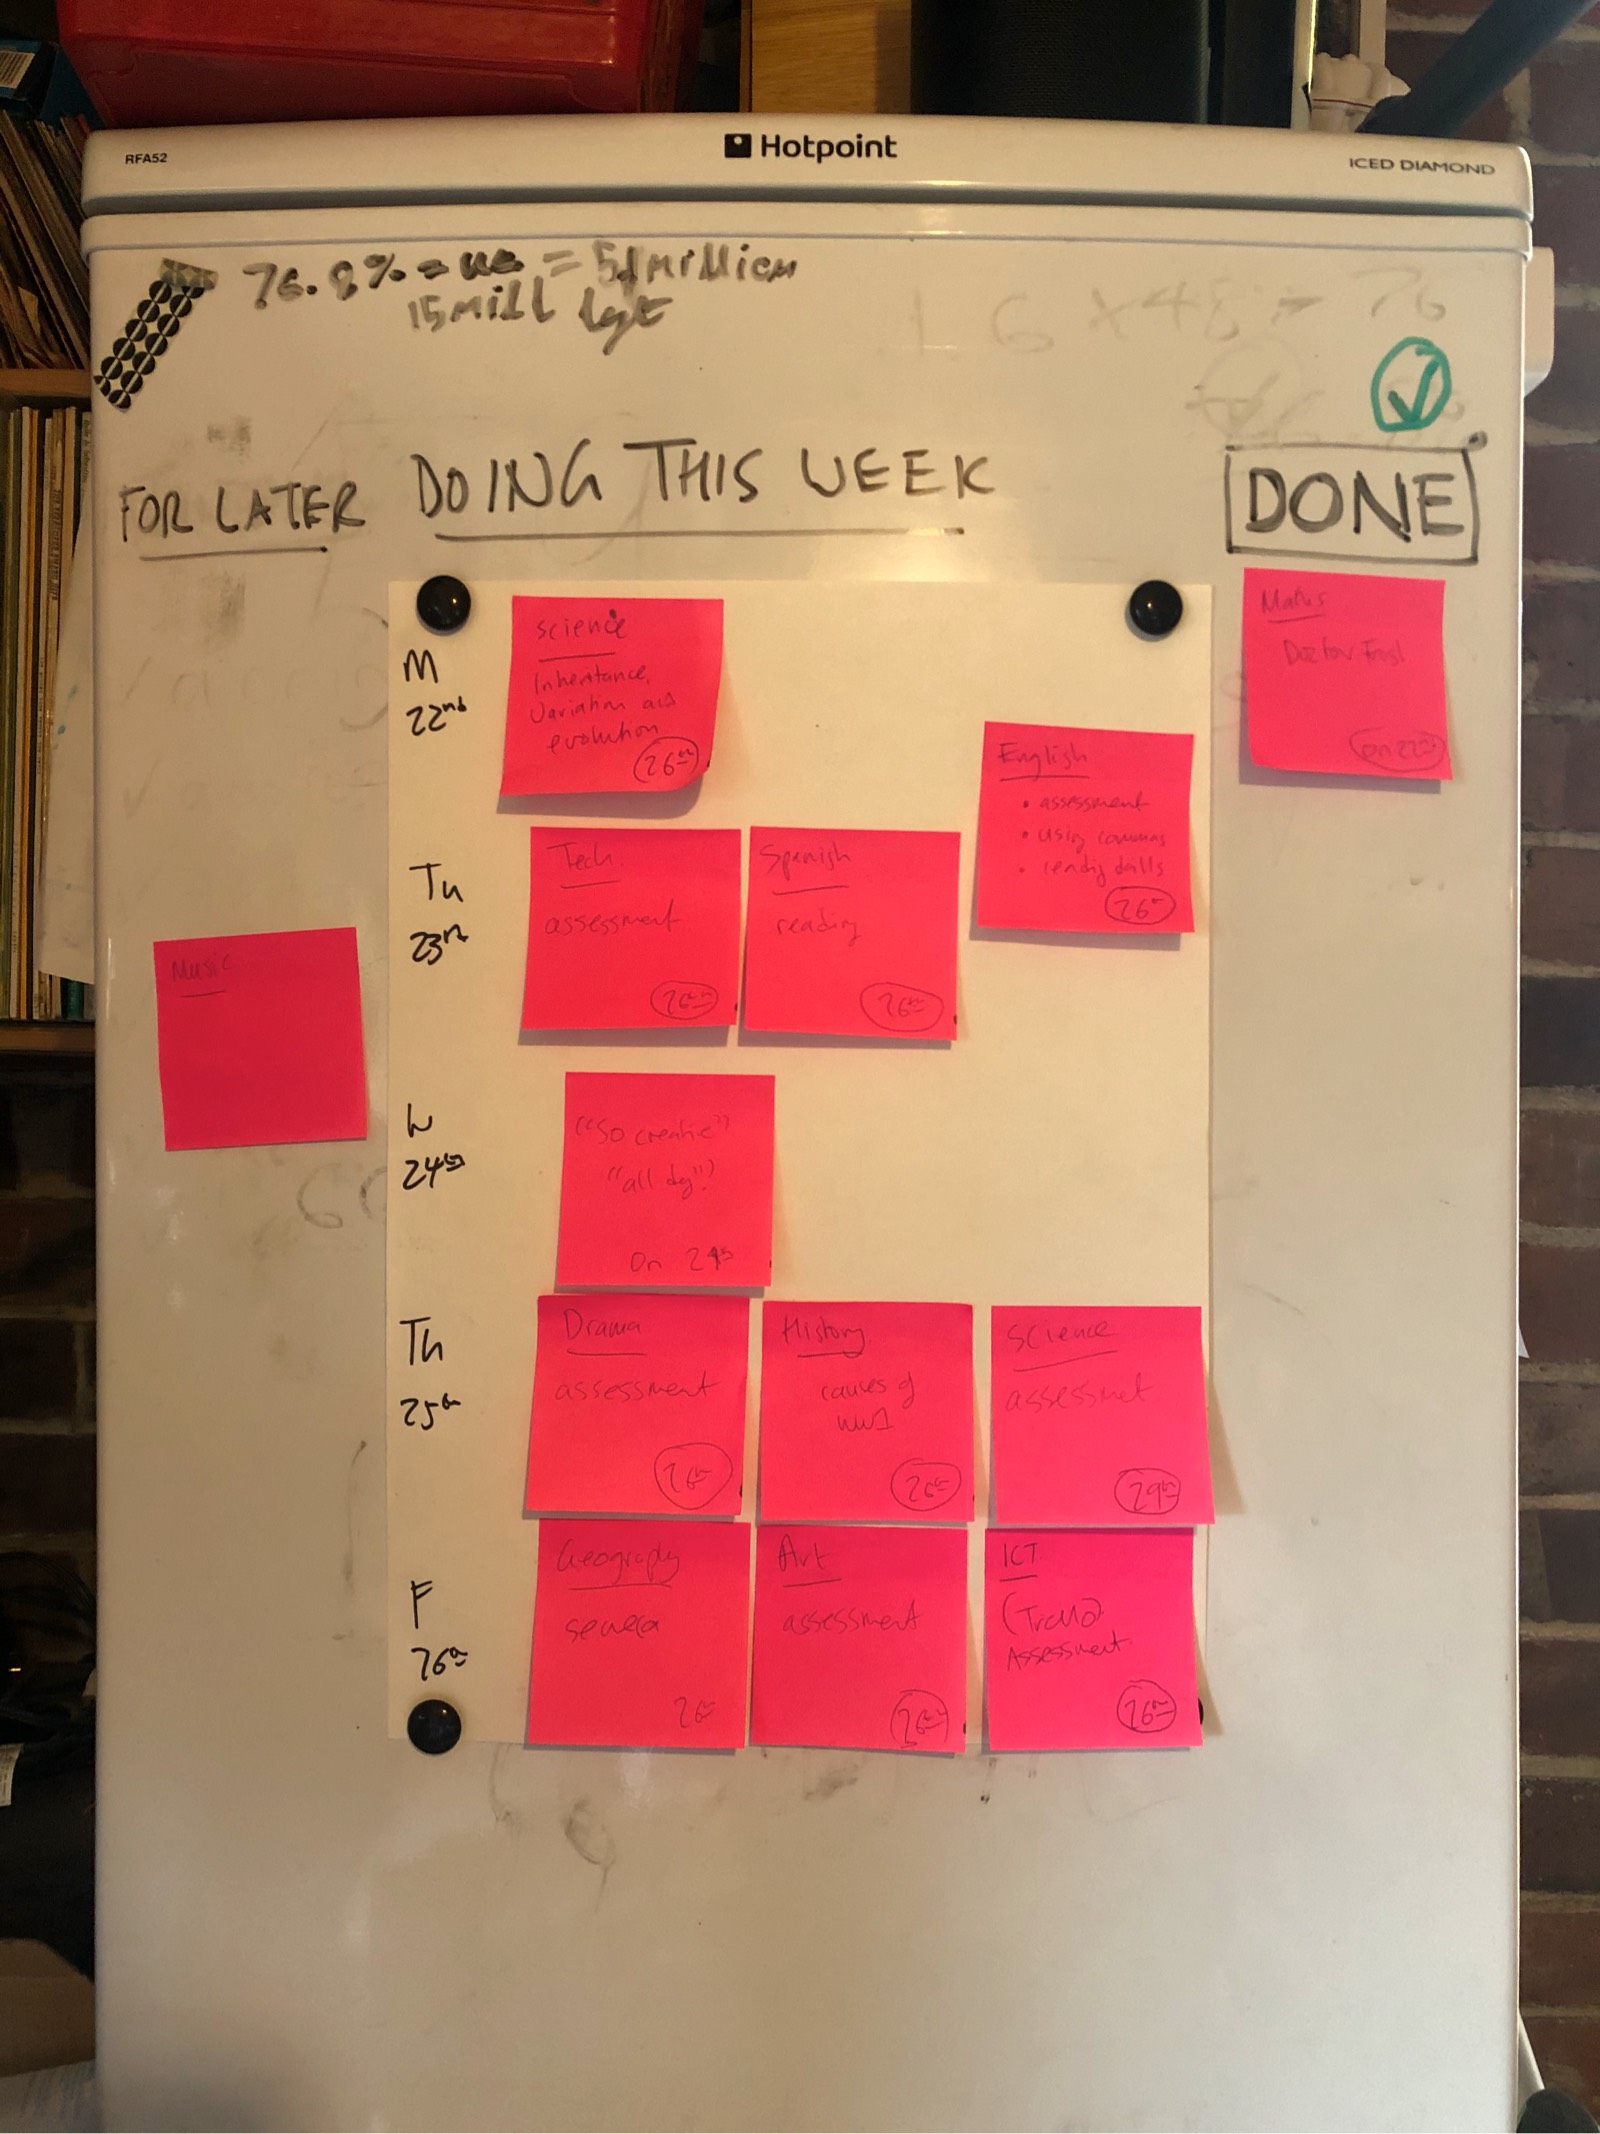 Hotpoint
RFA52
ICED DIAMOND
76.8% = = 51 million
15 mill
1.6 x 48 = 76
FOR LATER
DOING THIS WEEK
DONE
M
22nd
Science
Inheritance,
Variation and
evolution
26th
English
• assessment
• using commas
• reading drills
26th
Maths
Doctor Frost
on 22nd
Tu
23rd
Tech
assessment
26th
Spanish
reading
26th
Music
W
24th
"So creative"
"all day"?
On 24th
Th
25th
Drama
assessment
26th
History
causes of
WW1
26th
Science
assessmet
29th
F
26th
Geography
seneca
26th
Art
assessment
26th
ICT
(Trello)
Assessment
26th